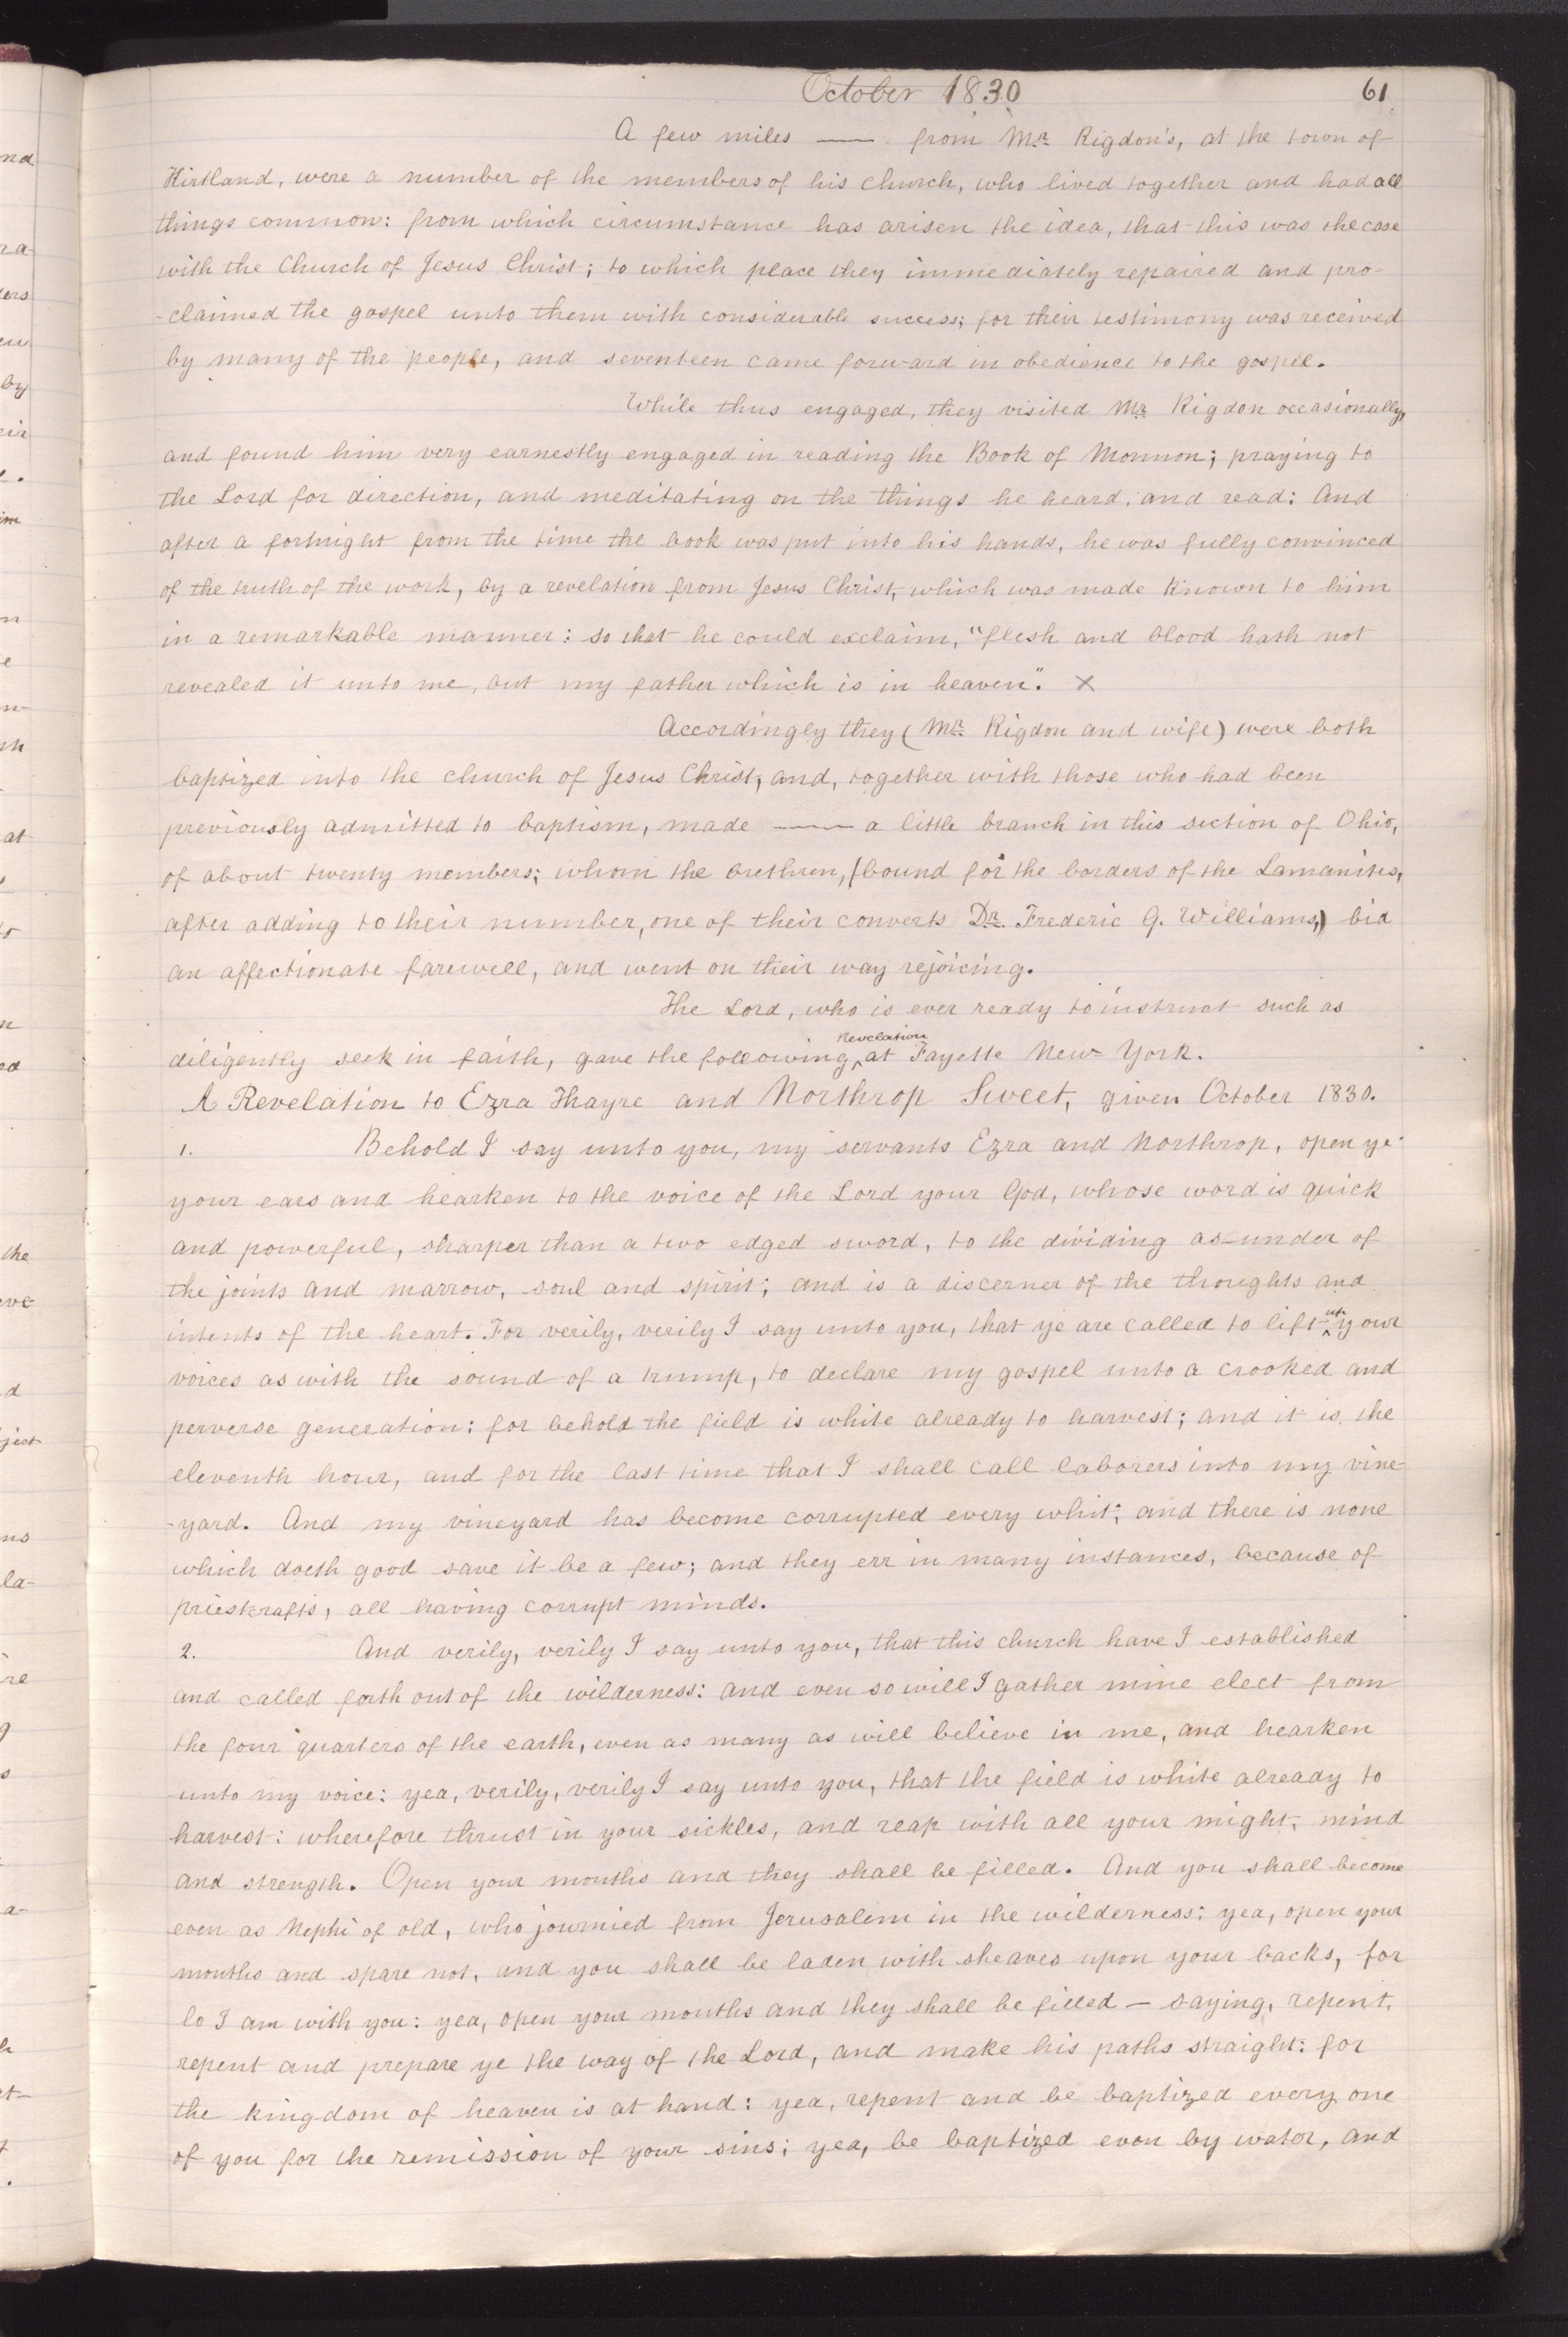 October 1830
61
A few miles —— from Mr. Rigdon's, at the town of
Kirtland, were a number of the members of his church, who lived together and had all
things common: from which circumstance has arisen the idea, that this was the case
with the Church of Jesus Christ; to which place they immediately repaired and pro-
-claimed the gospel unto them with considerable success; for their testimony was received
by many of the people, and seventeen came forward in obedience to the gospel.
While thus engaged, they visited Mr. Rigdon occasionally,
and found him very earnestly engaged in reading the Book of Mormon; praying to
the Lord for direction, and meditating on the things he heard, and read: And
after a fortnight from the time the book was put into his hands, he was fully convinced
of the truth of the work, by a revelation from Jesus Christ, which was made known to him
in a remarkable manner: so that he could exclaim, "flesh and blood hath not
revealed it unto me, but my father which is in heaven". X
Accordingly they (Mr. Rigdon and wife) were both
baptized into the church of Jesus Christ, and, together with those who had been
previously admitted to baptism, made —— a little branch in this section of Ohio,
of about twenty members; whom the brethren, (bound for the borders of the Lamanites,
after adding to their number, one of their converts Dr. Frederic G. Williams,) bid
an affectionate farewell, and went on their way rejoicing.
The Lord, who is ever ready to instruct such as
Revelation
diligently seek in faith, gave the following ^ at Fayette New-York.
A Revelation to Ezra Thayre and Northrop Sweet, given October 1830.
1. Behold I say unto you, my servants Ezra and Northrop, open ye
your ears and hearken to the voice of the Lord your God, whose word is quick
and powerful, sharper than a two edged sword, to the dividing as-under of
the joints and marrow, soul and spirit; and is a discerner of the thoughts and
intents of the heart. For verily, verily I say unto you, that ye are called to lift ^up your
voices as with the sound of a trump, to declare my gospel unto a crooked and
perverse generation: for behold the field is white already to harvest; and it is the
eleventh hour, and for the last time that I shall call laborers into my vine-
-yard. And my vineyard has become corrupted every whit; and there is none
which doeth good save it be a few; and they err in many instances, because of
priestcrafts, all having corrupt minds.
2. And verily, verily I say unto you, that this church have I established
and called forth out of the wilderness: and even so will I gather mine elect from
the four quarters of the earth, even as many as will believe in me, and hearken
unto my voice: yea, verily, verily I say unto you, that the field is white already to
harvest: wherefore thrust in your sickles, and reap with all your might, mind
and strength. Open your mouths and they shall be filled. And you shall become
even as Nephi of old, who journied from Jerusalem in the wilderness: yea, open your
mouths and spare not, and you shall be laden with sheaves upon your backs, for
lo I am with you: yea, open your mouths and they shall be filled — saying, repent,
repent and prepare ye the way of the Lord, and make his paths straight: for
the kingdom of heaven is at hand: yea, repent and be baptized every one
of you for the remission of your sins; yea, be baptized even by water, and